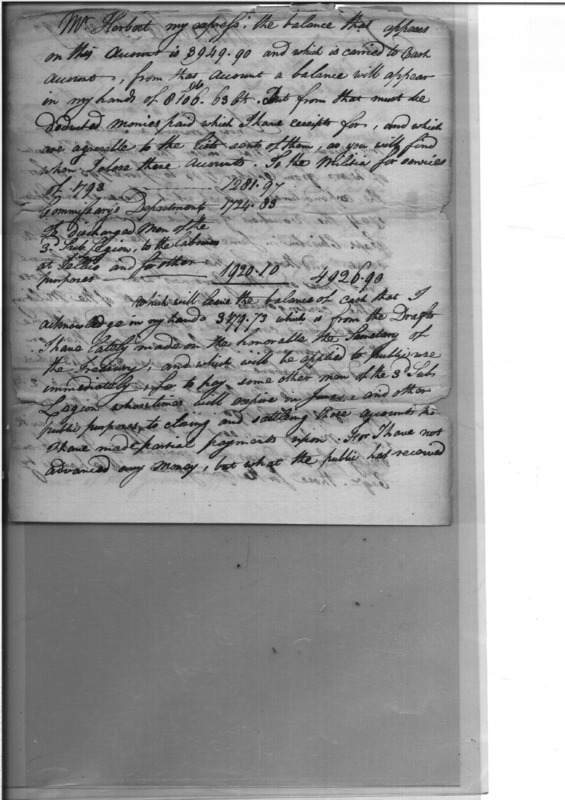 Mr. Herbert my express; the balance that appears
on this Account is 3949.90 and which is carried to Cash
Account, from that Account a balance will appear
in my hands of 8106. 63 But from that must be
deducted monies paid which I have receipts for, and which
are agreeable to the lists sent of them, as you will find
when I close these Accounts. To the Militia for services
of 1793 1281.97
Commissary's Department 1724.83
To Discharged Men of the
3. Sub Legion, to the labourers
at and for other
purposes 1920.10 4926.90
Which will leave the balance of cash that I
acknowledge in my hands 3179.73 which is from the Drafts
I have lately made on the honorable the Secretary of
the Treasury, and which will be applied to public use
immediately, for to pay some other men of the 3d. Sub
Legion whose times will expire in June, and other
public purposes, to closing and settling those accounts he
I have made partial payments upon. For I have not
advanced any money, but what the public has received